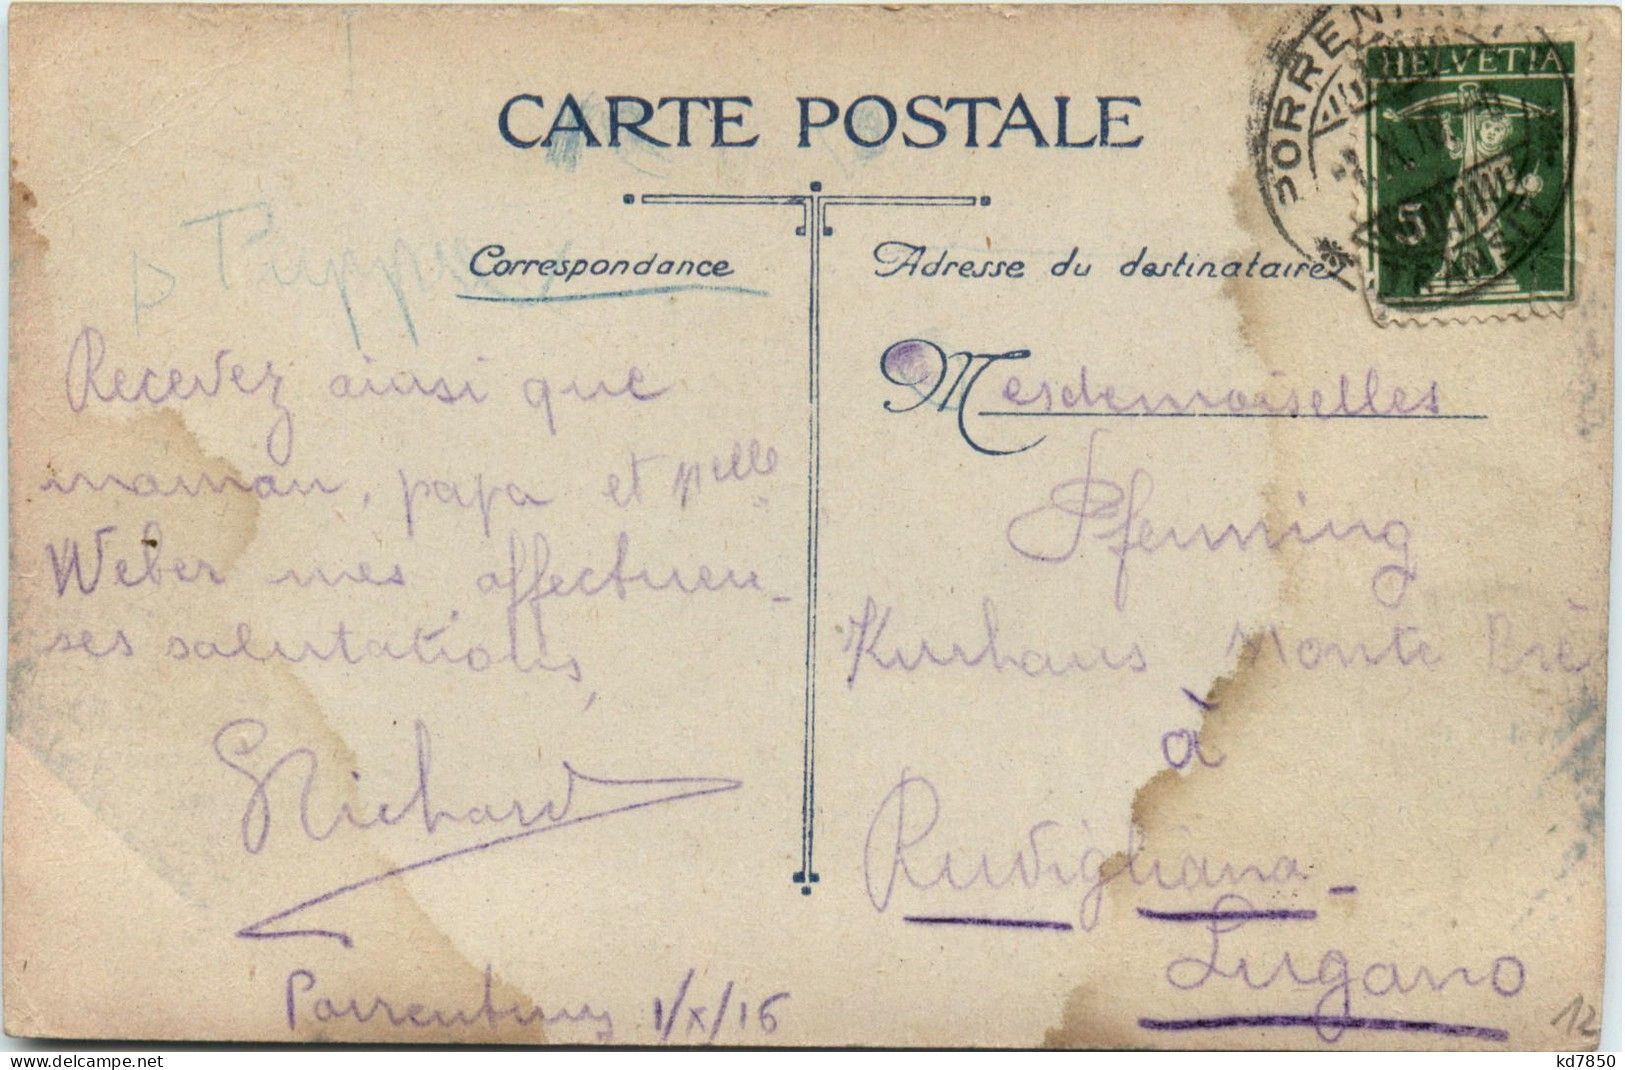 CARTE POSTALE
Correspondance
Recevez ainsi que
maman, papa et Mlle
Weber mes affectueu-
ses salutations,
Richard
Porrentruy 1/X/16
HELVETIA
5
TRANSIT
Adresse du destinataire
Mesdemoiselles
Pfenning
Kurhaus Monte Brè
à
Ruvigliana-
Lugano
12
kd7850
delcampe.net